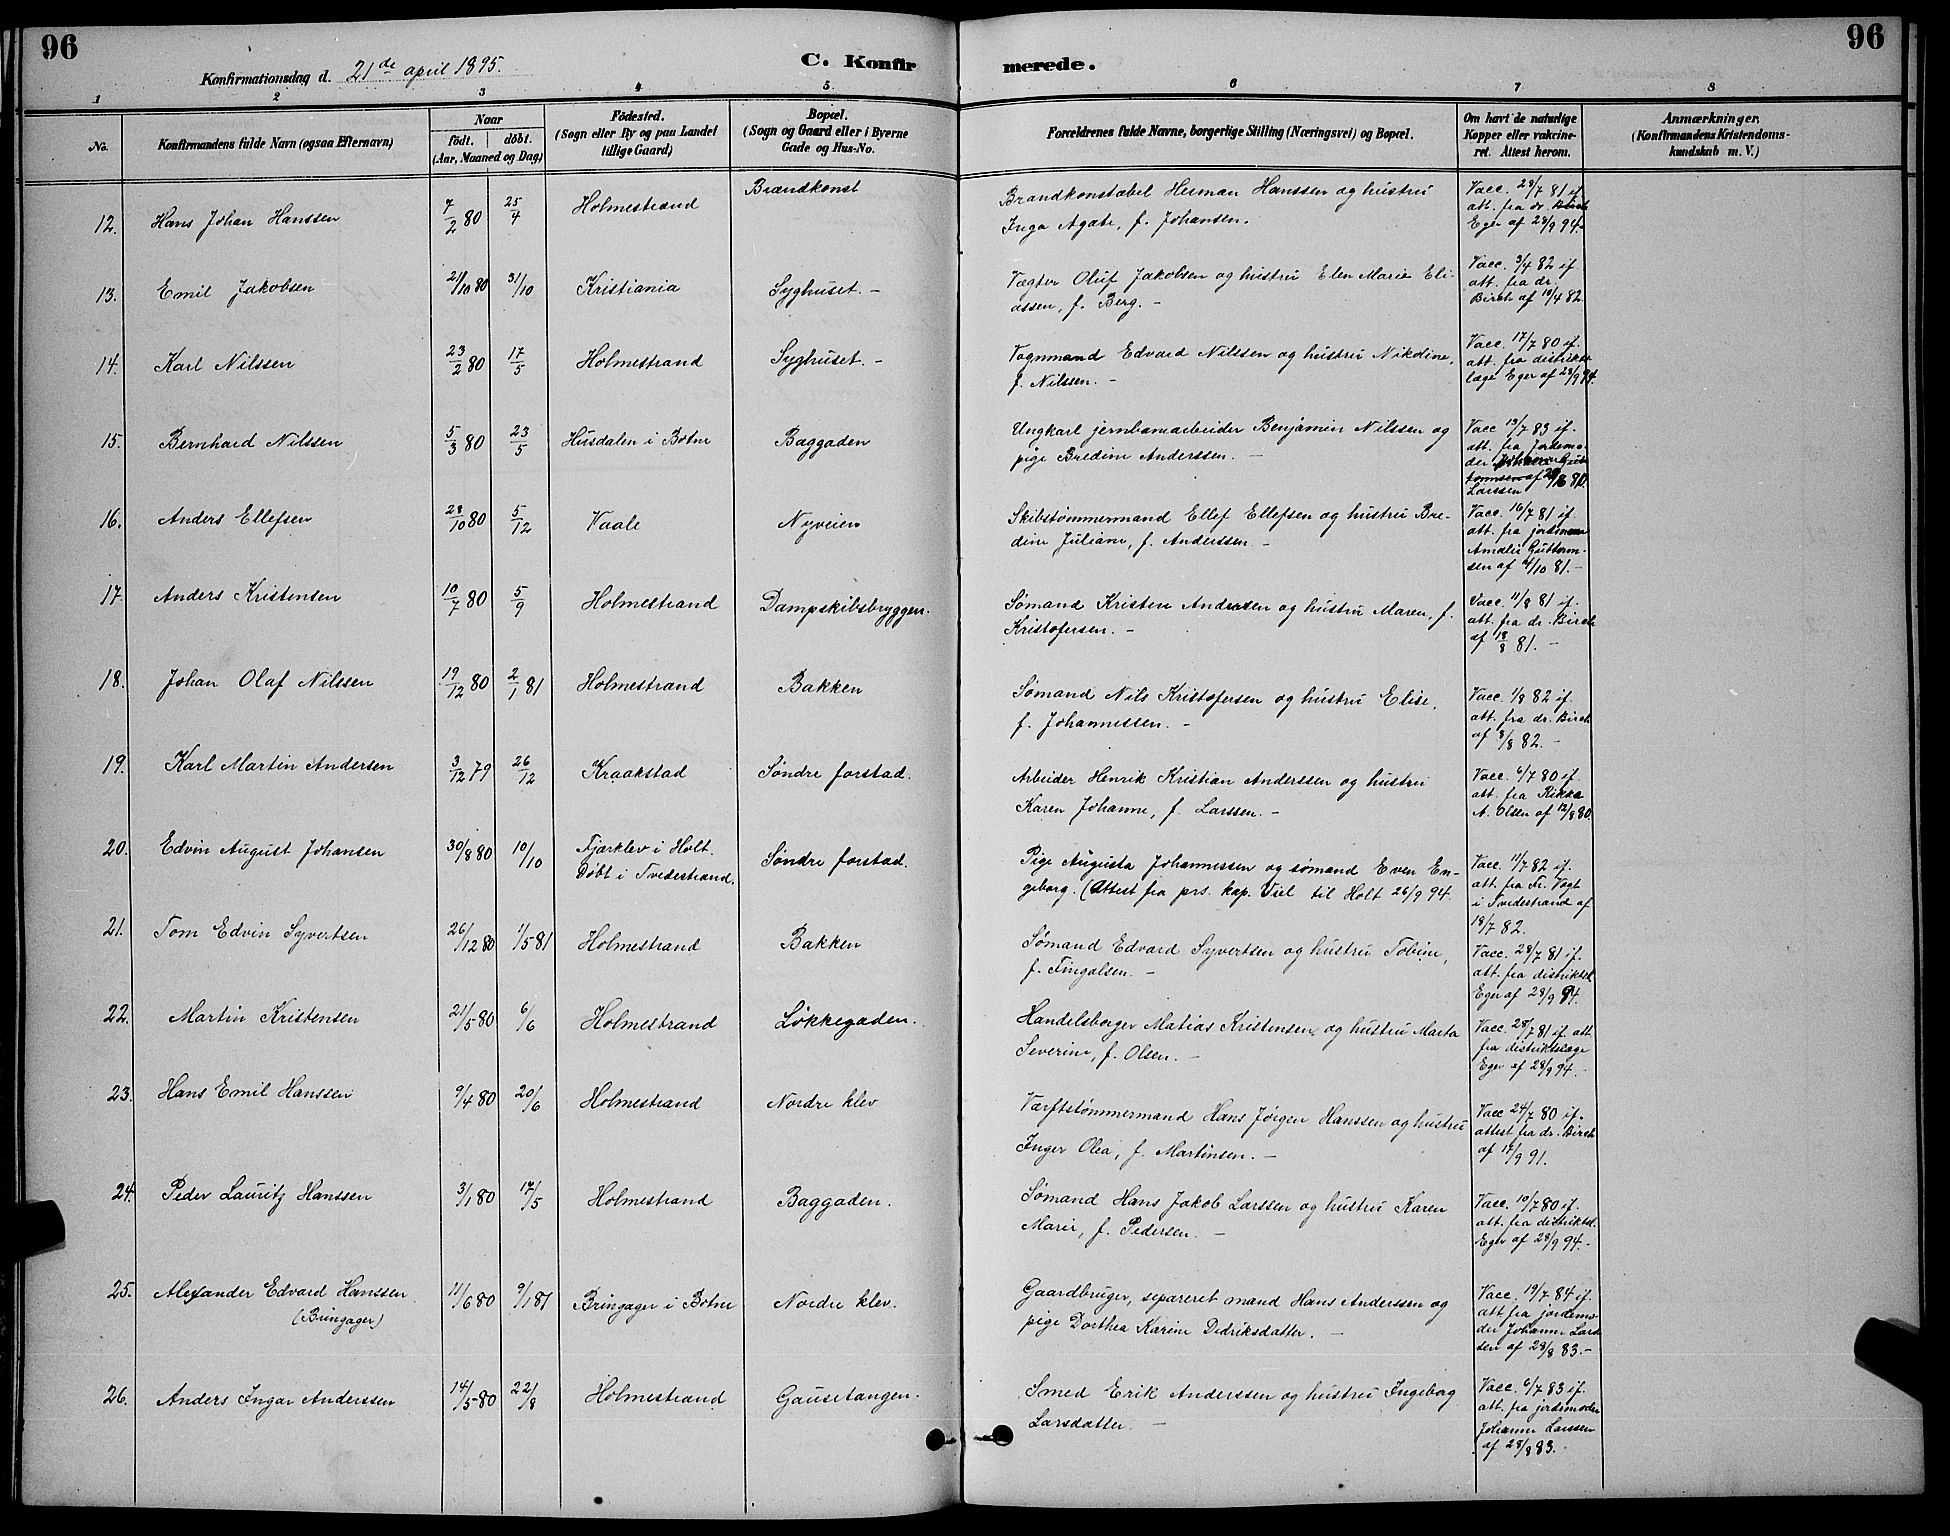 96
96
Konfirmationsdag d. 21de april 1895.
C. Konfirmerede.
1 2 3 4 5. 6 7 8
No.
Konfirmandens fulde Navn (ogsaa Efternavn)
Naar
født. døbt.
(Aar, Maaned og Dag)
Fødested.
(Sogn eller By og paa Landet
tillige Gaard)
Bopæl.
(Sogn og Gaard eller i Byerne
Gade og Hus-No.
Forældrenes fulde Navne, borgerlige Stilling (Næringsvei) og Bopæl.
Om havt de naturlige
Kopper eller vakcine-
ret. Attest herom.
Anmærkninger.
(Konfirmandens Kristendoms-
kundskab m. V.)
12. Hans Johan Hanssen 7/2 80 25/4 Holmestrand Brandkonst
Brandkonstabel Herman Hanssen og hustru
Inga Agate, f. Johansen.
Vacc. 28/7 81 if.
att. fra dr. Birch
Eger af 28/9 94.
13. Emil Jakobsen 21/10 80 31/10 Kristiania Syghuset. -
Vægter Oluf Jakobsen og hustru Elen Marie Eli-
assen, f. Berg. -
Vacc. 3/4 82 if.
att. fra dr.
Birch af 10/4 82.
14. Karl Nilssen 23/2 80 17/5 Holmestrand Syghuset. -
Vognmand Edvard Nilssen og hustru Nikoline,
f. Nilssen. -
Vacc. 17/7 80 if.
att. fra distrikts
læge Eger af 28/9 94.
15. Bernhard Nilssen 5/3 80 23/5 Husdalen i Botne Baggaden
Ungkarl jernbanarbeider Benjamin Nilssen og
pige Bredine Anderssen. -
Vacc 19/7 83 if.
att. fra Jordemo-
der Johanne Gut-
tormsen af 29/8 81.
Larssen
16. Anders Ellefsen 28/10 80 5/12 Vaale Nyveien
Skibstømmermand Ellef Ellefsen og hustru Bre-
dine Juliane, f. Anderssen. -
Vacc. 16/7 81 if.
att. fra jordemor
Amalie Guttorm-
sen af 4/10 81. -
17. Anders Kristensen 10/7 80 5/9 Holmestrand Dampskibsbryggen.
Sømand Kristen Andersen og hustru Maren, f.
Kristofersen. -
Vacc. 11/8 81 if.
att. fra dr. Birch
af 18/8 81. -
18. Johan Olaf Nilssen 19/12 80 2/1 81 Holmestrand Bakken
Sømand Nils Kristofersen og hustru Elise,
f. Johannessen. -
Vacc. 1/8 82 if.
att. fra dr. Birch
af 8/8 82. -
19. Karl Martin Andersen 3/12 79 26/12 Kraakstad Søndre forstad.
Arbeider Henrik Kristian Anderssen og hustru
Karen Johanne, f. Larssen. -
Vacc. 6/7 80 if.
att. fra Rikka
A. Olsen af 12/8 80.
20. Edvin August Johansen 30/8 80 10/10 Fjærklev i Holt.
Døbt i Tvedestrand. Søndre forstad.
Pige Augusta Johannessen og sømand Even En-
geborg. (Attest fra prs. kap. Vsel til Holt 26/9 94.
Vacc. 11/7 82 if.
att. fra Fr. Vogt
i Tvedestrand af
18/7 82.
21. Tom Edvin Syvertsen 26/12 80 1/5 81 Holmestrand Bakken
Sømand Edvard Syvertsen og hustru Tobine,
f. Fingalsen. -
Vacc. 28/7 81 if.
att. fra distriktsl.
Eger af 28/9 94.
22. Martin Kristensen 21/5 80 6/6 Holmestrand Løkkegaden.
Handelsborger Matias Kristensen og hustru Marta
Severine, f. Olsen. -
Vacc. 28/7 81 if. att
fra distriktslæge
Eger af 28/9 94. -
23. Hans Emil Hanssen 9/4 80 20/6 Holmestrand Nordre klev
Værftstømmermand Hans Jørgen Hanssen og hustru
Inger Olea, f. Martinsen. -
Vacc 24/7 80 if.
attest fra dr. Birch
af 17/9 91.
24. Peder Lauritz Hanssen 3/1 80 17/5 Holmestrand Baggaden.
Sømand Hans Jakob Larssen og hustru Karen
Marie, f. Pedersen. -
Vacc. 10/7 80 if.
att. fra distriktsl.
Eger af 28/9 94. -
25. Alexander Edvard Hanssen
(Bringager) 11/6 80 9/1 81 Bringager i Botne Nordre klev.
Gaardbruger, separeret mand Hans Anderssen og
pige Dorthea Karine Didriksdatter. -
Vacc. 19/7 84 if.
att fra jordemo-
der Johanne Lars-
sen af 28/8 83. -
26. Anders Ingar Anderssen 14/5 80 22/8 Holmestrand Gausetangen.
Smed Erik Anderssen og hustru Ingeborg
Larsdatter -
Vacc. 6/7 83 if.
att. fra jordemoder
Johanne Larssen
af 28/8 83. -